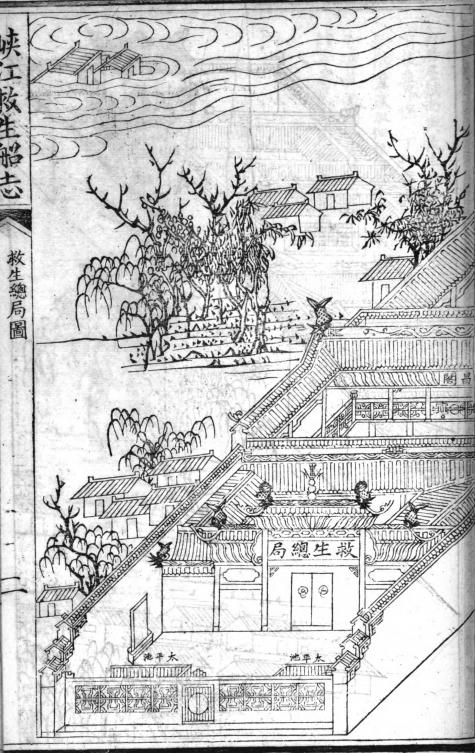 峽江救生船志
救生總局圖
二
閣
救生總局
太平池
太平池